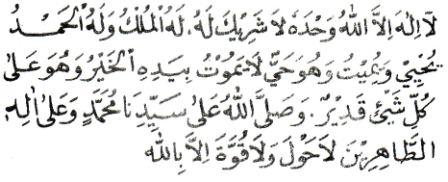 لَآ اِلٰهَ اِلَّا اللّٰهُ وَحْدَهٗ لَا شَرِيْكَ لَهٗ، لَهُ الْمُلْكُ وَلَهُ الْحَمْدُ
يُحْيِيْ وَيُمِيْتُ وَهُوَ حَيٌّ لَا يَمُوْتُ بِيَدِهِ الْخَيْرُ وَهُوَ عَلٰى
كُلِّ شَيْئٍ قَدِيْرٌ. وَصَلَّى اللّٰهُ عَلٰى سَيِّدِنَا مُحَمَّدٍ وَعَلٰى اٰلِهِ
الطَّاهِرِيْنَ لَا حَوْلَ وَلَا قُوَّةَ اِلَّا بِاللّٰهِ